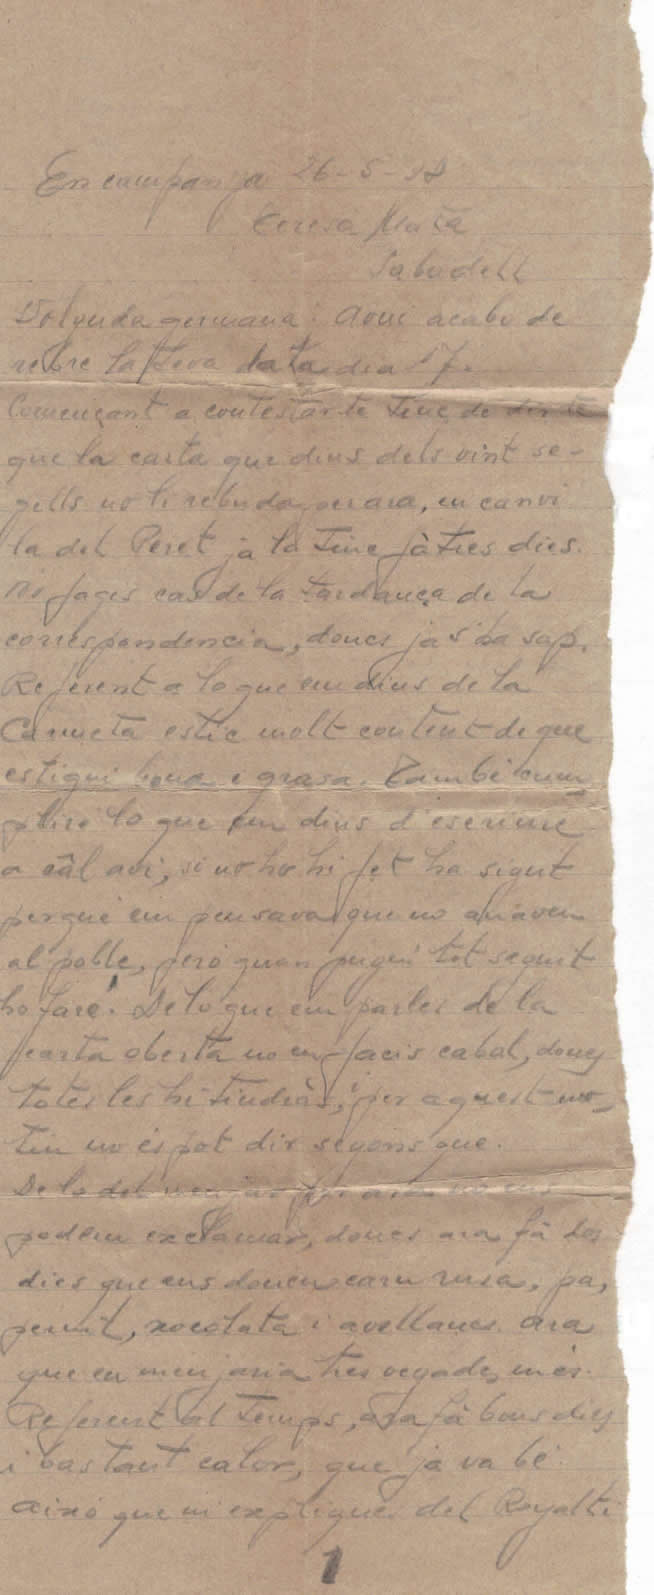 En campanya 26-5-38
Teresa Mata
Sabadell
Volguda germana: Aqui acabo de
rebre la teva data dia 17.
Començant a contestarte tinc de dirte
que la carta que dius dels vint se-
gells no li rebuda perara, en canvi
la del Peret ja la tinc fà tres dies.
No fagis cas de la tardança de la
correspondencia, doncs ja s'ha sap.
Referent a lo que em dius de la
Canueta estic molt content de que
estigui bona i grasa. També cum
plire lo que em dius d'escriure
a càl avi, si no ho hi fet ha sigut
perque em pensava que no anavem
al poble, però quan pugui tot seguit
ho faré. De lo que em parles de la
carta oberta no en facis cabal, doncs
totes les hi tindràs, i per aquest mo-
tiu no és pot dir segons que.
De lo del menjar per ara no ens
podem exclamar, doncs ara fà dos
dies que ens donen carn rusa, pa,
pernil, xocolata i avellanes. Ara
que en menjaria tres vegades més.
Referent al temps, ara fà bons dies
i bastant calor, que ja va bé.
Aixó que m expliques del Royalti
1